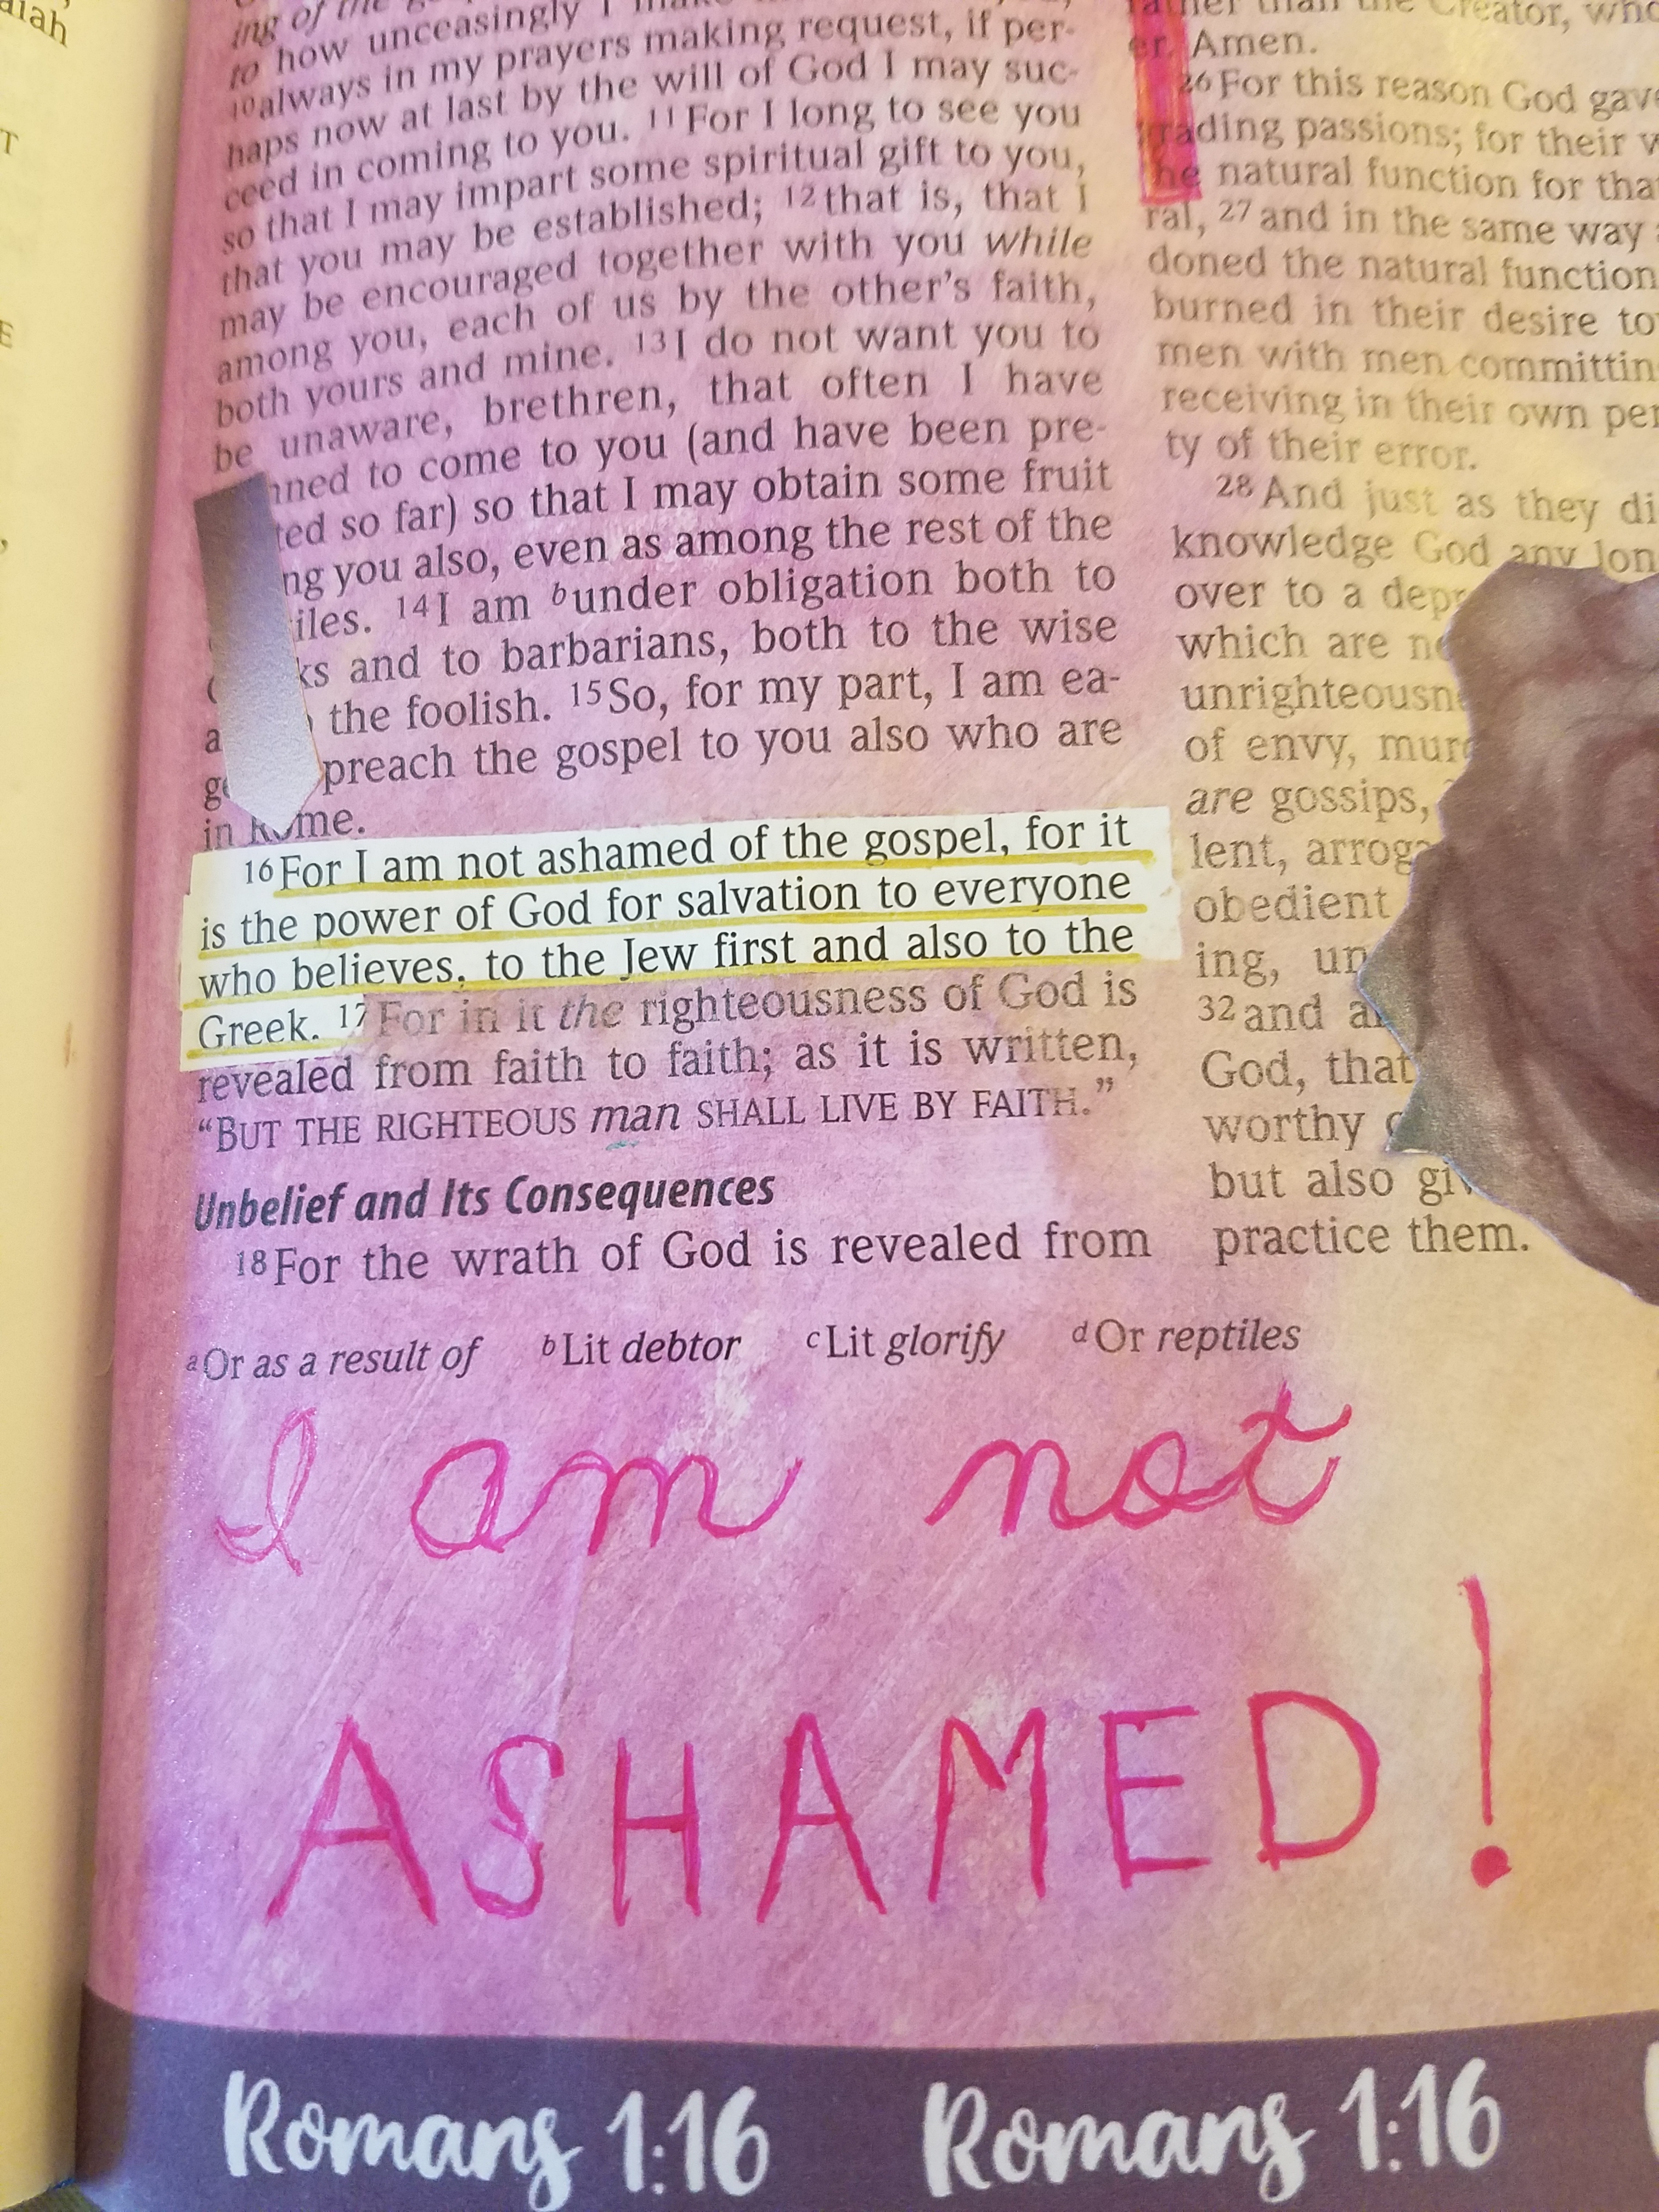 aiah
T
E
ing of the
to how unceasingly I make
10always in my prayers making request, if per-
haps now at last by the will of God I may suc-
ceed in coming to you. 11For I long to see you
so that I may impart some spiritual gift to you,
that you may be established; 12that is, that I
may be encouraged together with you while
among you, each of us by the other's faith,
both yours and mine. 13I do not want you to
be unaware, brethren, that often I have
nned to come to you (and have been pre-
ted so far) so that I may obtain some fruit
ng you also, even as among the rest of the
iles. 14I am bunder obligation both to
ks and to barbarians, both to the wise
a the foolish. 15So, for my part, I am ea-
ge preach the gospel to you also who are
in Rome.
16For I am not ashamed of the gospel, for it
is the power of God for salvation to everyone
who believes, to the Jew first and also to the
Greek. 17For in it the righteousness of God is
revealed from faith to faith; as it is written,
“BUT THE RIGHTEOUS man SHALL LIVE BY FAITH.”
Unbelief and Its Consequences
18For the wrath of God is revealed from
rather than the Creator, who
er. Amen.
26For this reason God gave
grading passions; for their w
he natural function for tha
ral, 27and in the same way a
doned the natural function
burned in their desire to
men with men committin
receiving in their own per
ty of their error.
28And just as they di
knowledge God any lon
over to a depr
which are no
unrighteousne
of envy, murd
are gossips,
lent, arroga
obedient
ing, un
32and al
God, that
worthy o
but also giv
practice them.
aOr as a result of bLit debtor cLit glorify dOr reptiles
I am not
ASHAMED!
Romans 1:16 Romans 1:16